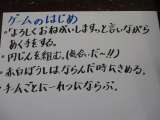 ゲームのはじめ
・「よろしくおねがいします。」と言いながら
あく手をする。
・円じんを組む。(気合いだ〜!!)
・赤白ぼうしはならんだ時にきめる。
・チームごとに一れつにならぶ。